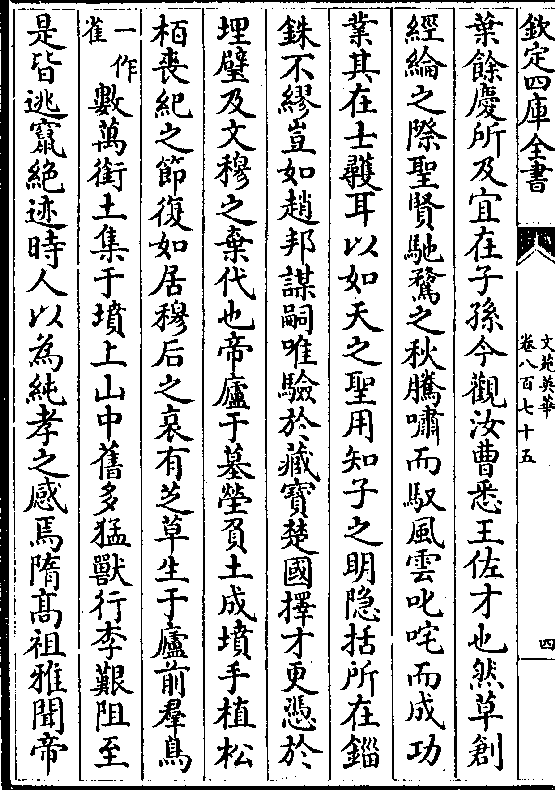 欽定四庫全書
文苑英華
卷八百七十五
四
葉餘慶所及宜在子孫今觀汝曹悉王佐才也然草創
經綸之際聖賢馳騖之秋騰嘯而馭風雲叱咤而成功
業其在士彠耳以如天之聖用知子之明隐括所在錙
銖不繆豈如趙邦謀嗣唯驗於藏寳楚國擇才更憑於
埋璧及文穆之棄代也帝廬于墓塋負土成墳手植松
栢喪紀之節復如居穆后之哀有芝草生于廬前羣鳥
一作雀
數萬銜土集于墳上山中舊多猛獸行李艱阻至
是皆逃竄絶迹時人以為純孝之感焉隋髙祖雅聞帝